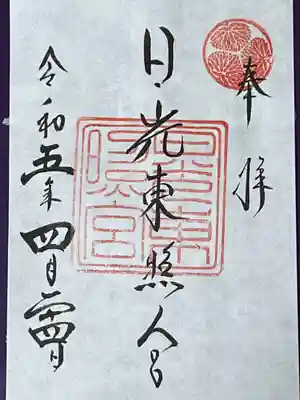 奉拝
日光東照宮
東照宮
令和五年四月二十四日